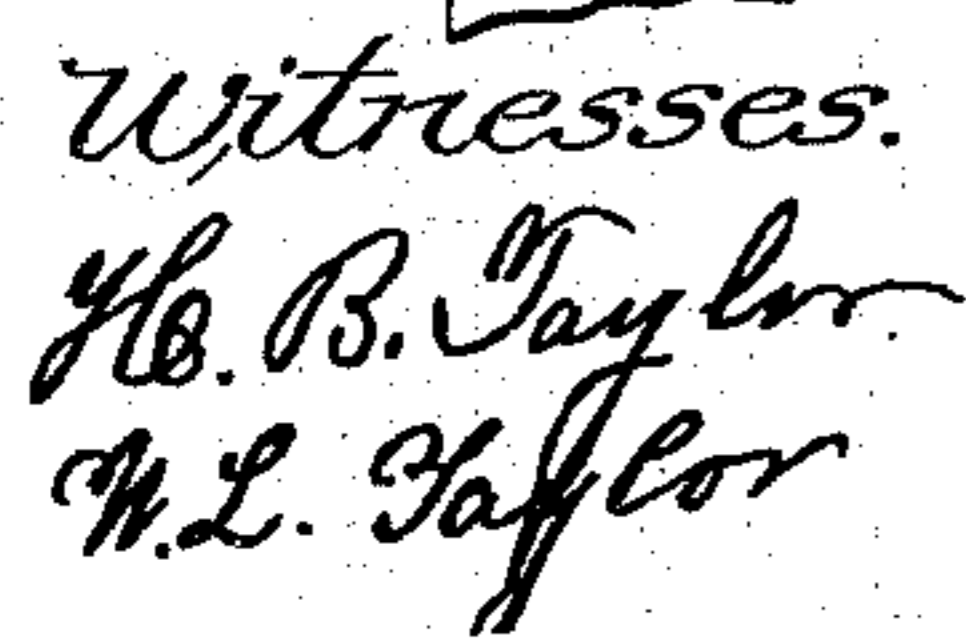 Witnesses.
H. B. Taylor
W. L. Taylor